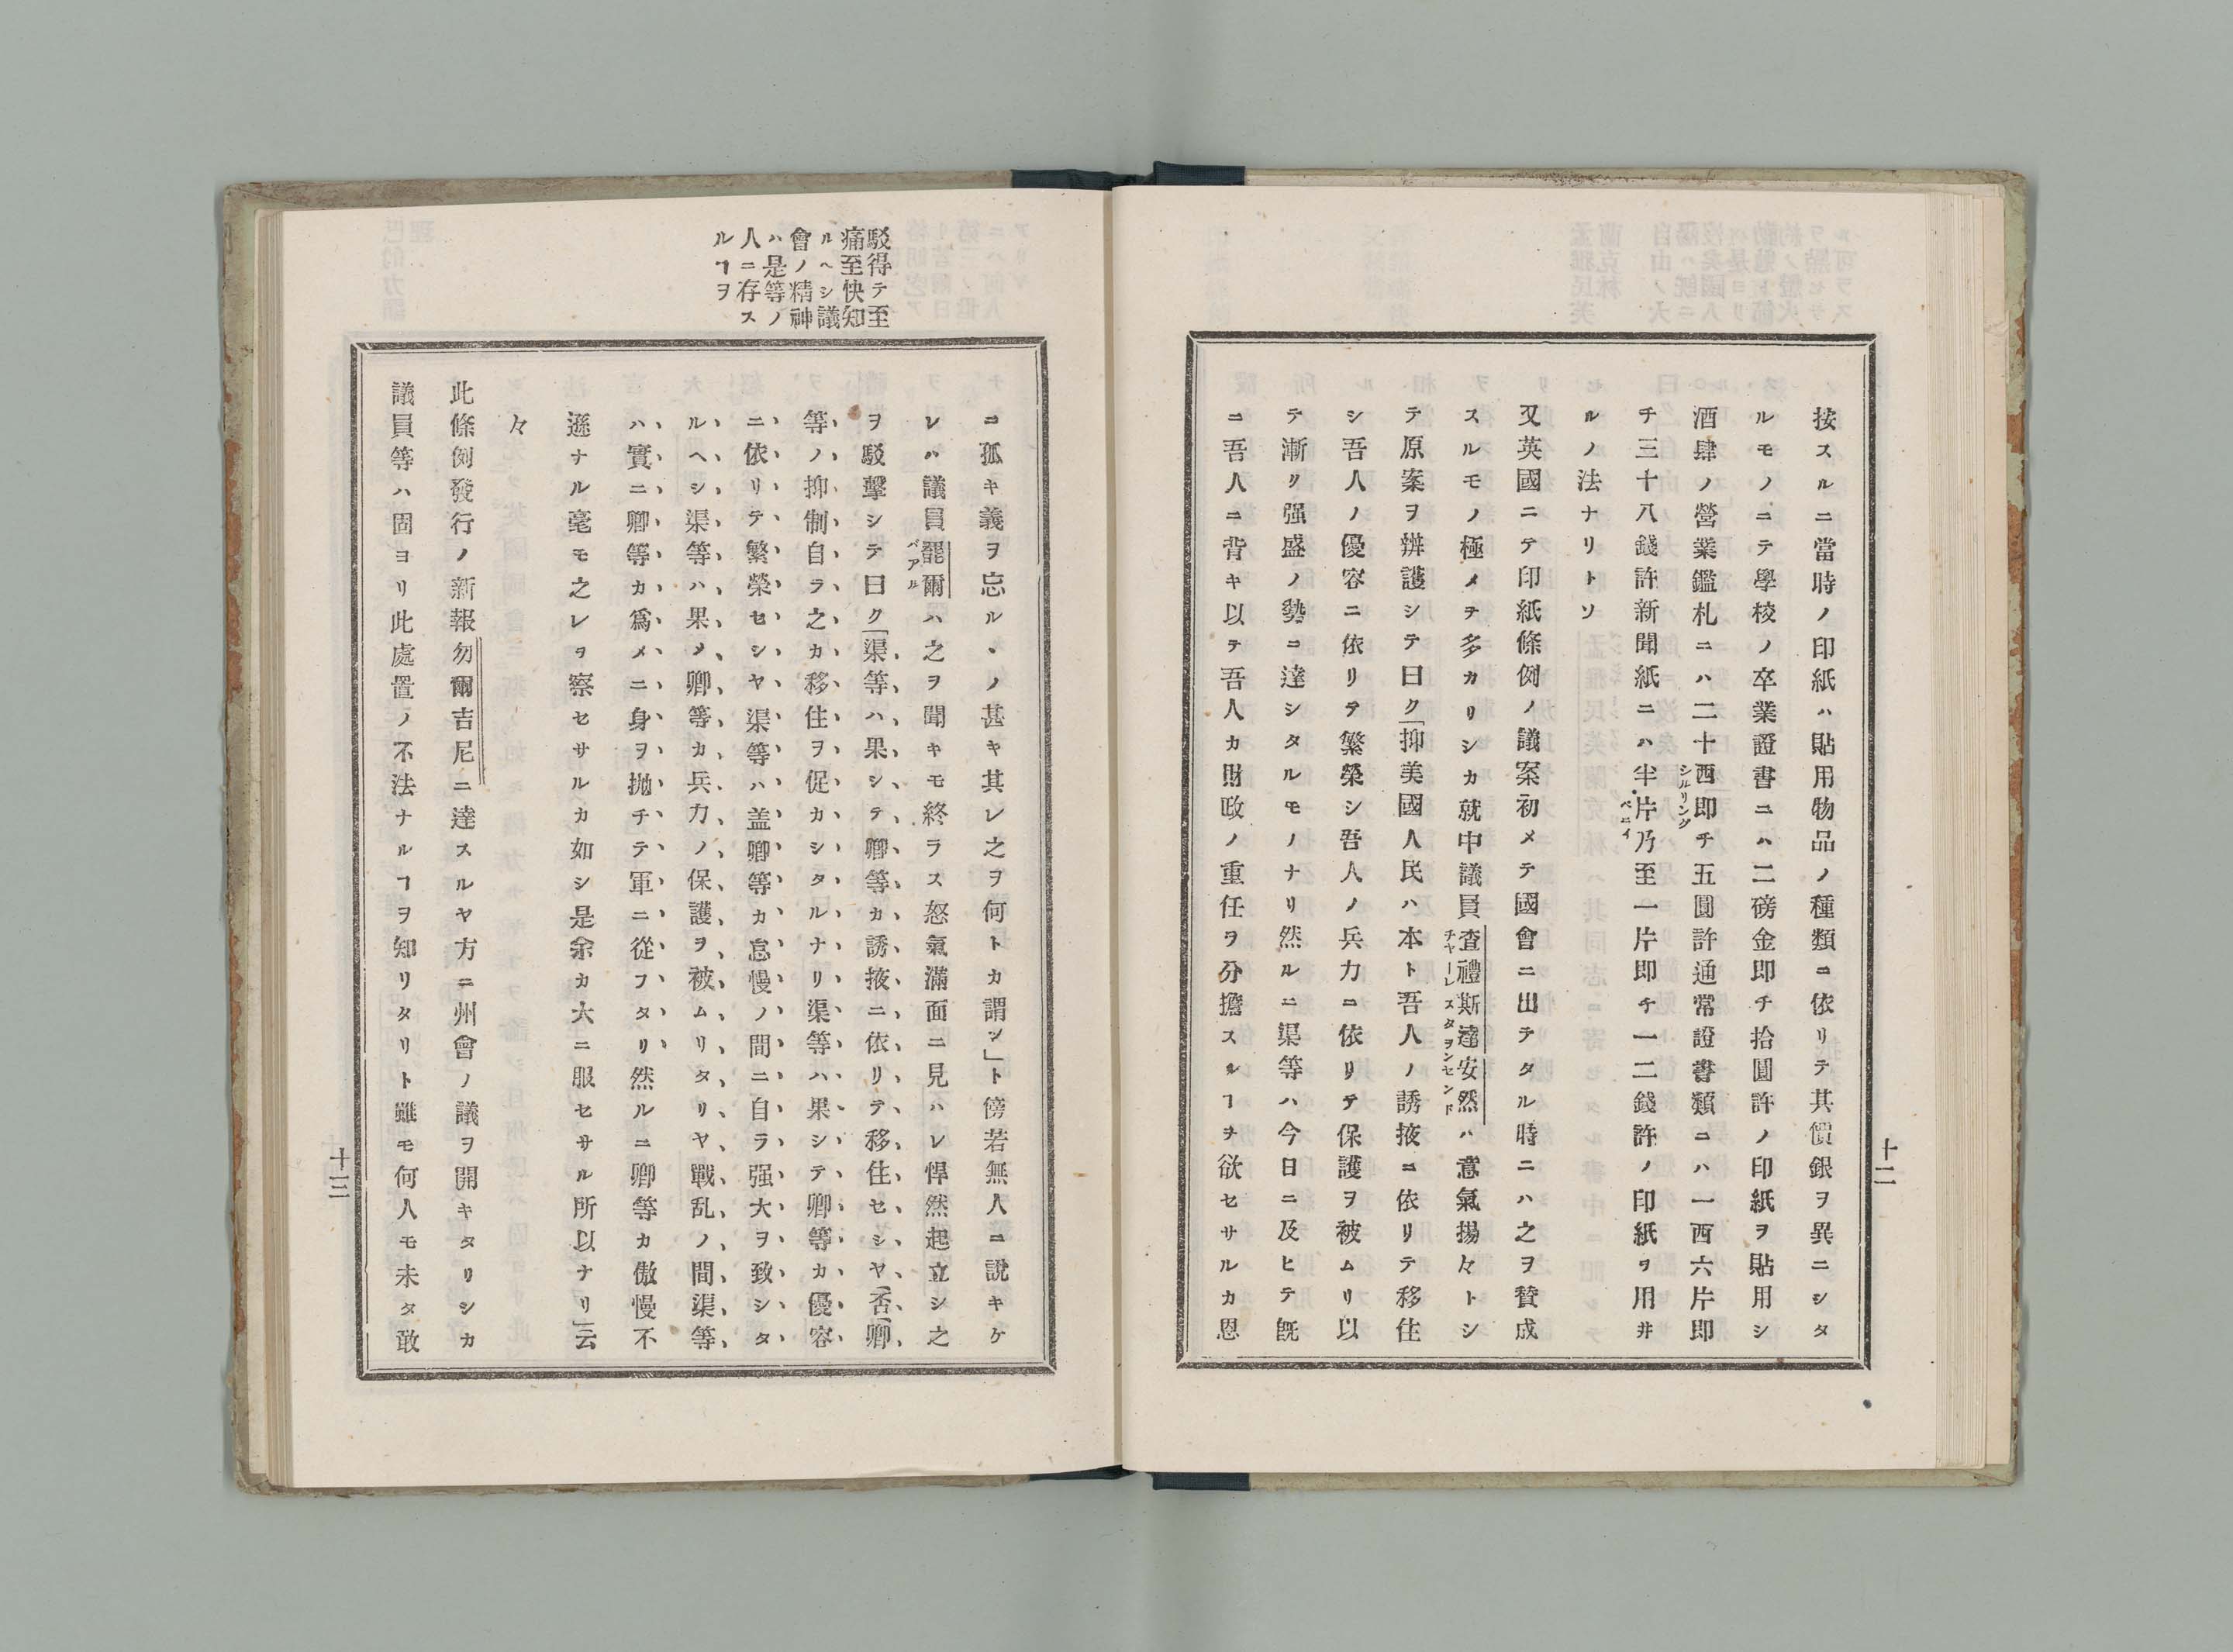 十二
按スルニ當時ノ印紙ハ貼用物品ノ種類ニ依リテ其價銀ヲ異ニシタ
ルモノニテ學校ノ卒業證書ニハ二磅金即チ拾圓許ノ印紙ヲ貼用シ
酒肆ノ營業鑑札ニハ二十西即チ五圓許通常證書類ニハ一西六片即
シルリング
チ三十八錢許新聞紙ニハ半片乃至一片即チ一二錢許ノ印紙ヲ用井
ペニイ
ルノ法ナリトソ
又英國ニテ印紙條例ノ議案初メテ國會ニ出テタル時ニハ之ヲ賛成
スルモノ極メテ多カリシカ就中議員査禮斯達安然ハ意氣揚々トシ
チヤーレスタヲンセンド
テ原案ヲ辨護シテ曰ク「抑美國人民ハ本ト吾人ノ誘掖ニ依リテ移住
シ吾人ノ優容ニ依リテ繁榮シ吾人ノ兵力ニ依リテ保護ヲ被ムリ以
テ漸リ强盛ノ勢ニ達シタルモノナリ然ルニ渠等ハ今日ニ及ヒテ既
ニ吾人ニ背キ以テ吾人カ財政ノ重任ヲ分擔スルヿヲ欲セサルカ恩
ニ孤キ義ヲ忘ルヽノ甚キ其レ之ヲ何トカ謂ン」ト傍若無人ニ説キケ
レハ議員罷爾ハ之ヲ聞キモ終ラス怒氣滿面ニ見ハレ悍然起立シ之
ベアル
ヲ駁擊シテ曰ク「渠等ハ果シテ卿等カ誘掖ニ依リテ移住セシヤ（否）卿
等ノ抑制自ラ之カ移住ヲ促カシタルナリ渠等ハ果シテ卿等カ優容
ニ依リテ繁榮セシヤ渠等ハ盖卿等カ怠慢ノ間ニ自ラ强大ヲ致シタ
ルヘシ渠等ハ果メ卿等カ兵力ノ保護ヲ被ムリタリヤ戰乱ノ間渠等
ハ實ニ卿等カ爲メニ身ヲ抛チテ軍ニ從フタリ然ルニ卿等カ傲慢不
遜ナル毫モ之レヲ察セサルカ如シ是余カ大ニ服セサル所以ナリ」云
々
此條例發行ノ新報勿爾吉尼ニ達スルヤ方ニ州會ノ議ヲ開キタリシカ
議員等ハ固ヨリ此處置ノ不法ナルヿヲ知リタリト雖モ何人モ未タ敢
駁得テ至
痛至快知
ルヘシ議
會ノ精神
ハ是等ノ
人ニ存ス
ルヿヲ
十三